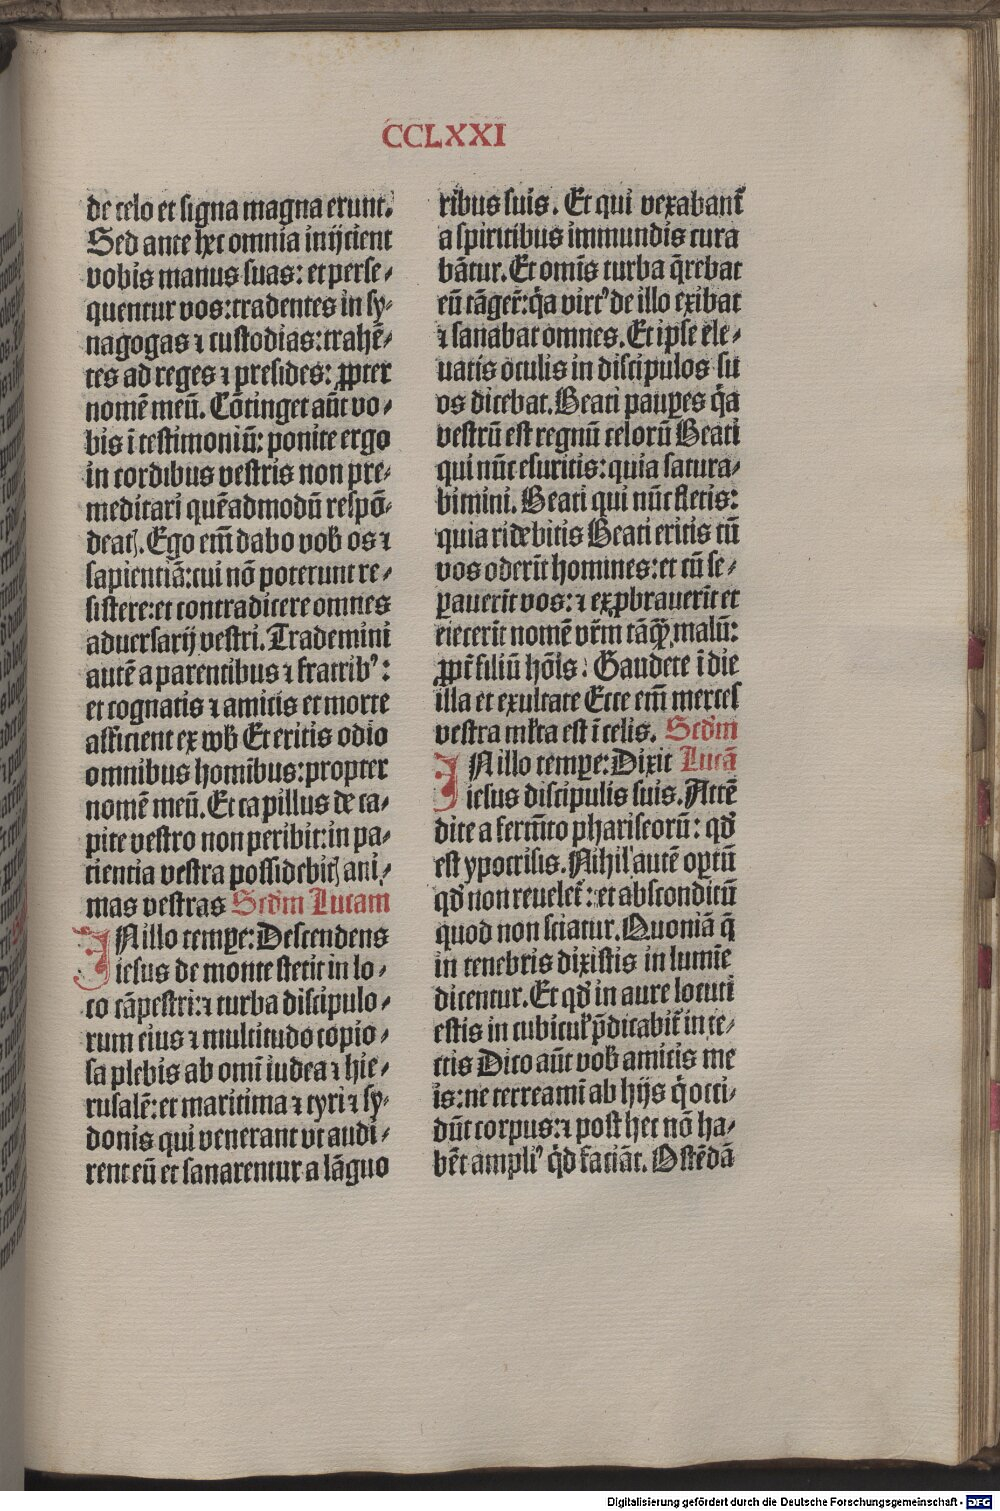 CCLXXI
de celo et signa magna erunt.
Sed ante hec omnia inijcient
vobis manus suas: et perse⸗
quentur vos: tradentes in sy⸗
nagogas ⁊ custodias: trahe᷑⸗
tes ad reges ⁊ presides: ꝓpter
nomē meū. Cōtinget aūt vo⸗
bis ī testimoniū: ponite ergo
in cordibus vestris non pre⸗
meditari quēadmodū respō⸗
deatꝭ. Ego em̄ dabo vob̄ os ⁊
sapientiā: cui nō poterunt re⸗
sistere: et contradicere omnes
aduersarij vestri. Trademini
autē a parentibus ⁊ fratrib⁹:
et cognatis ⁊ amicis et morte
afficient ex vob̄ Et eritis odio
omnibus homībus: propter
nomē meū. Et capillus de ca⸗
pite vestro non peribit: in pa⸗
tientia vestra possidebitꝭ ani⸗
mas vestras Scd̄m Lucam
IN illo tempꝑe: Descendens
iesus de monte stetit in lo⸗
co cāpestri: ⁊ turba discipulo⸗
rum eius ⁊ multitudo copio⸗
sa plebis ab omī iudea ⁊ hie⸗
rusalē: et maritima ⁊ tyri ⁊ sy⸗
donis qui venerant vt audi⸗
rent eū et sanarentur a lāguo
ribus suis. Et qui vexabant᷑
a spiritibus immundis cura
bātur. Et omīs turba q̄rebat
eū tāget᷑: q̇a virt⁹ de illo exibat
⁊ sanabat omnes. Et ipse ele⸗
uatis oculis in discipulos su
os dicebat. Beati pauꝑes q̇a
vestrū est regnū celorū Beati
qui nūc esuritis: quia satura⸗
bimini. Beati qui nūc fletis:
quia ridebitis Beati eritis cū
vos oderīt homines: et cū se⸗
ꝑauerīt vos: ⁊ exꝓbrauerīt et
eiecerīt nomē vr̄m tāꝙ̄ malū:
ꝓpt᷑ filiū hōīs. Gaudete ī die
illa et exultate Ecce em̄ merces
vestra ml̄ta est ī celis. Scd̄m
IN illo tempꝑe: Dixit Lucā
iesus discipulis suis. Attē
dite a fermēto phariseorū: qd̄
est ypocrisis. Nihil autē opꝑtū
qd̄ non reuelet᷑: et absconditū
quod non sciatur. Quoniā q̄
in tenebris dixistis in lumīe
dicentur. Et qd̄ in aure locuti
estis in cubicul̄ p̄dicabit᷑ in te⸗
ctis Dico aūt vob̄ amicis me
is: ne terreamī ab hijs q̇ occi⸗
dūt corpus: ⁊ post hec nō ha⸗
bēt ampli⁹ qd̄ faciāt. Ostēdā
Digitalisierung gefördert durch die Deutsche Forschungsgemeinschaft - DFG